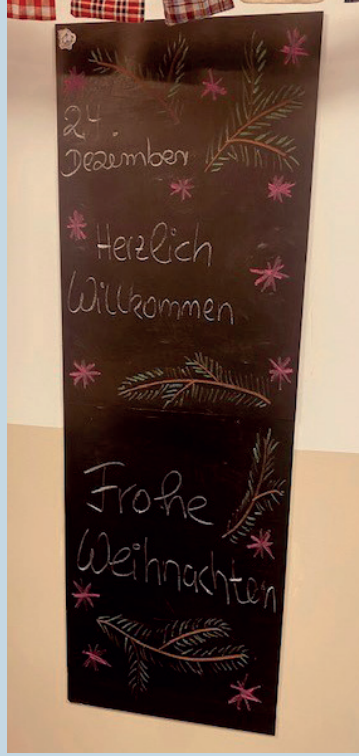 24.
Dezember
Herzlich
Willkommen
Frohe
Weihnachten